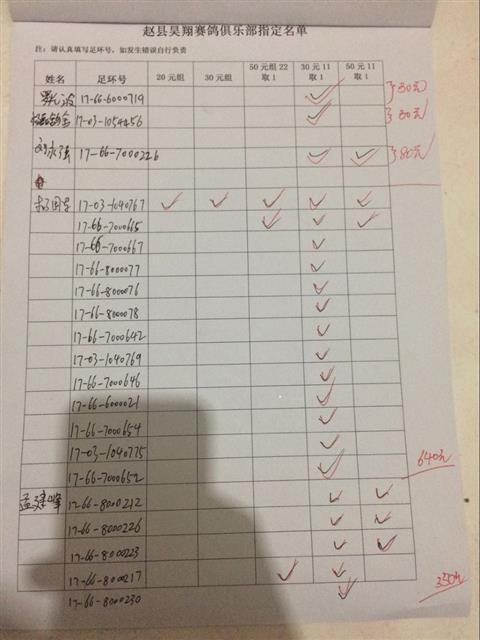 赵县昊翔赛鸽俱乐部指定名单
注：请认真填写足环号，如发生错误自行负责
姓名 足环号 20元组 30元组 50元组22取1 30元11取1 50元11取1
17-66-6000719 30元
17-03-1054456 30元
17-66-7000226 80元
17-03-1040767
17-66-7000665
17-66-7000667
17-66-8000077
17-66-8000076
17-66-8000078
17-66-7000642
17-03-1040769
17-66-7000646
17-66-6000021
17-66-7000654
17-03-1040775
17-66-7000652 640元
孟建峰 17-66-8000212
17-66-8000226
17-66-8000223
17-66-8000217 350元
17-66-8000230